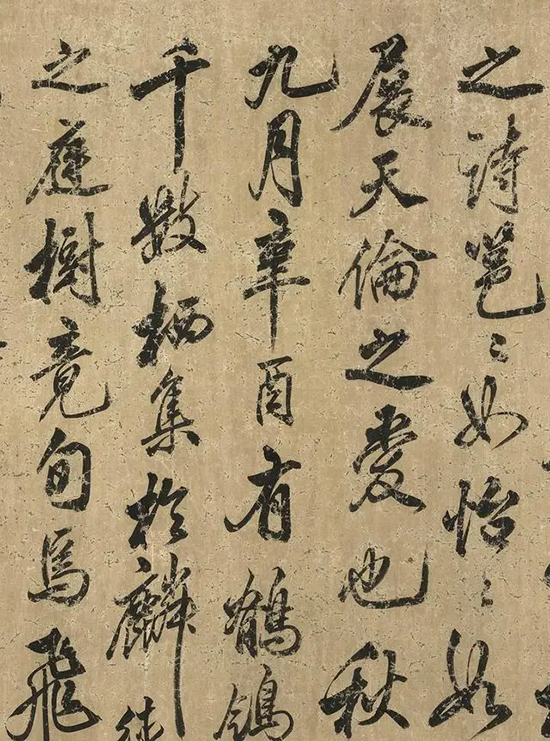 之詩邕〻如怡〻如
展天倫之愛也秋
九月辛酉有鶺鴒
千數栖集於麟德
之庭樹竟旬焉飛